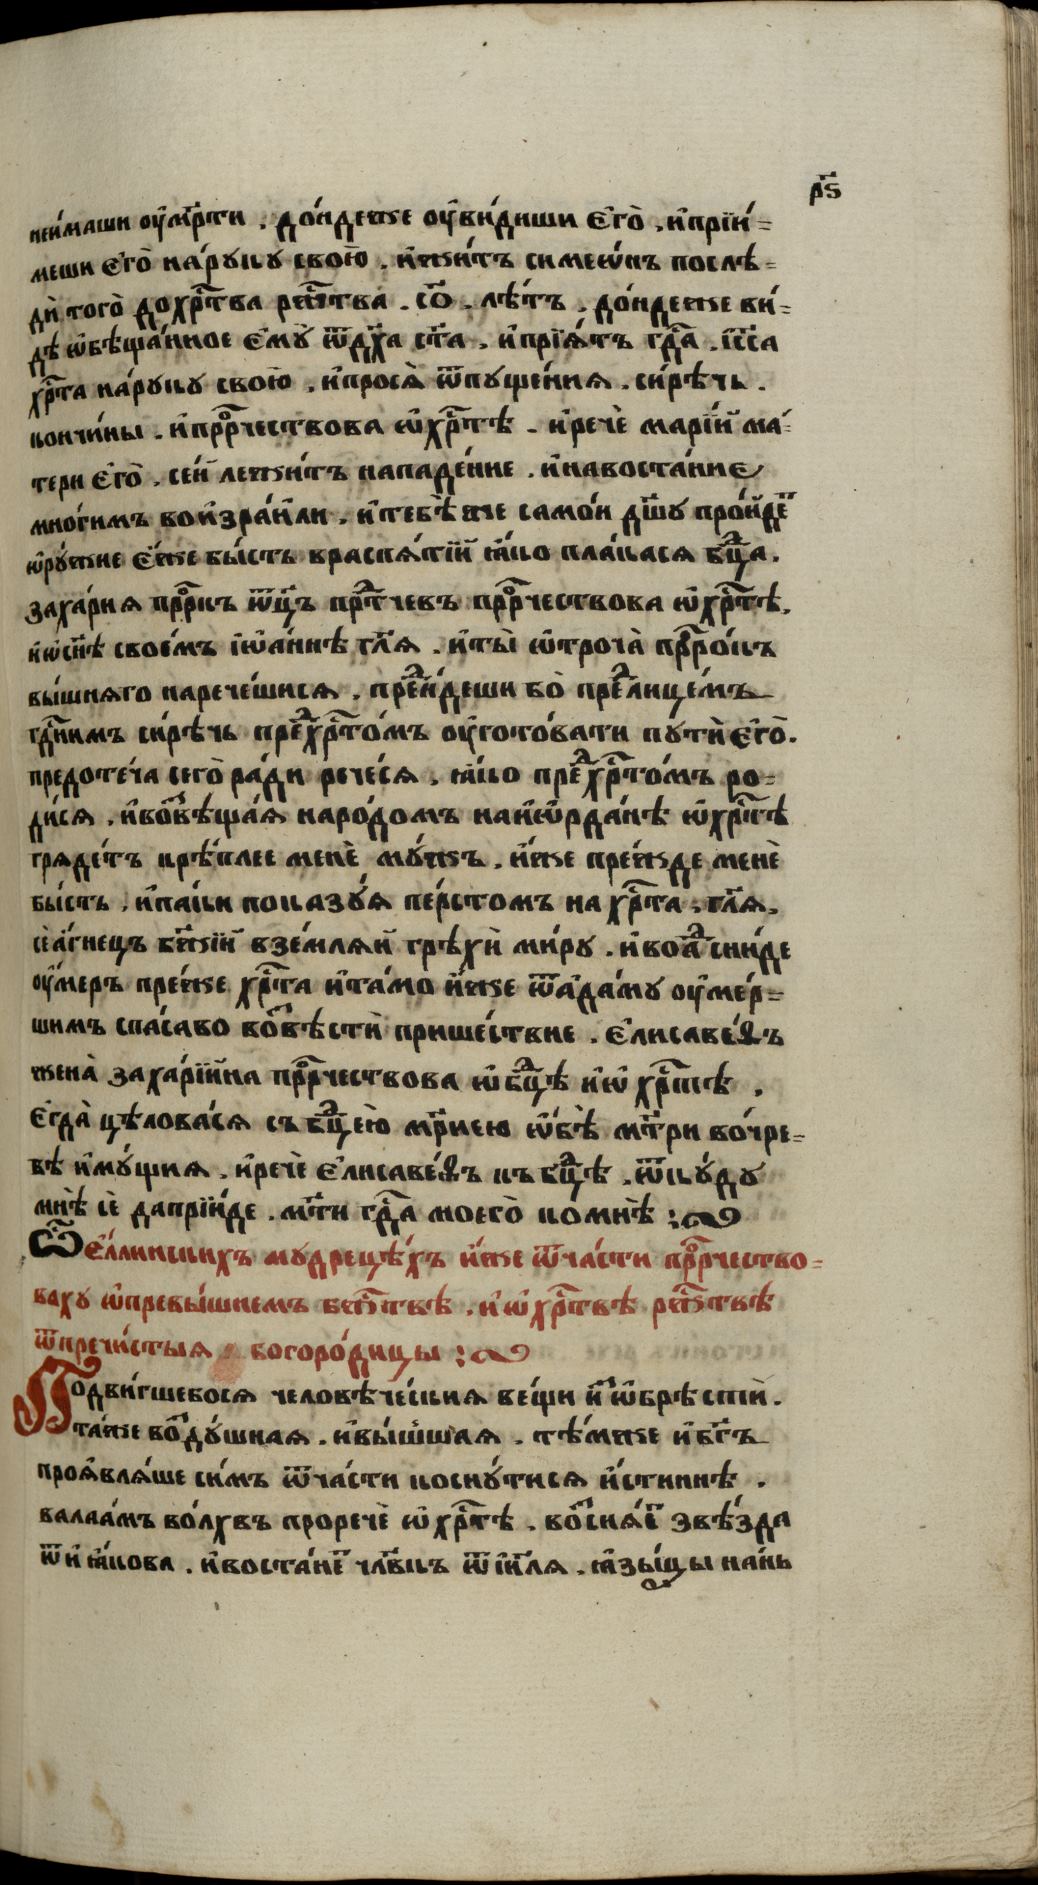 р҃ѕ
неи́маши оу҆мр҃ти . до́ндеже оу҆ви́диши є҆го̀ . и҆прїи́=
меши є҆го̀ на́руку свою̀ . и҆жи́тъ симеѡ́нъ послѣ=
дѝ того̀ дохрⷭ҇тва ржⷭ҇тва̀ . со҃ . лѣ́тъ . до́ндеже ви́=
дѣ ѡ҆бѣща́нное є҆мꙋ̀ ѿдх҃а ст҃а . и҆прїѧ́тъ гдⷭ҇а . і҆сⷭ҇а
хрⷭ҇та на́руку свою̀ . и҆проси́ѧ ѿпуще́нїѧ . си́рѣчь .
кончи́ны . и҆прⷪ҇рчествова ѡ҆хрⷭ҇тѣ̀ . и҆речѐ марі́и ма́=
тери є҆го̀ . се́й лежи́тъ нападе́ние . и҆навоста́ние
мно́гимъ вои҆зра́или . и҆тебѣ́ же само́и дш҃у про́йдеⷮ
ѡ҆ру́жие є҆́же бы́сть враспѧ́тїй ꙗ҆́ко пла́касѧ бцⷣа .
заха́риѧ прⷪ҇ркъ ѿц҃ъ прⷣтчевъ прⷪ҇рчествова ѡ҆хрⷭ҇тѣ̀ .
и҆ѡ҆сн҃ѣ свое́мъ і҆ѡа́ннѣ гл҃ѧ . и҆ты̀ ѻ҆троча̀ прⷪ҇ро́къ
вы́шнѧго нарече́шисѧ . преⷣи́деши бо̀ преⷣлице́мъ
гдⷭ҇нимъ си́рѣчь преⷣхрⷭ҇то́мъ оу҆гото́вати путѝ є҆го̀ .
предоте́ча сего̀ ра́ди рече́сѧ . ꙗ҆́ко преⷣхрⷭ҇то́мъ ро=
ди́сѧ . и҆воⷥвѣща́ѧ наро́домъ наи҆ѡрда́нѣ ѡ҆хрⷭ҇тѣ̀
грѧде́тъ крѣ́плее менѐ му́жъ . и҆́же пре́жде менѐ
бы́сть . и҆па́ки показу́ѧ пе́рстомъ на хрⷭ҇та . гл҃ѧ .
сѐ а҆́гнецъ бж҃їй взе́млѧй грѣ́хи ми́ру . и҆воа҆ⷣ сни́де
оу҆́меръ пре́же хрⷭ҇та и҆та́мо и҆́же ѿа҆да́му оу҆ме́р=
шимъ спа́саво воⷥвѣстѝ прише́ствие . є҆лисаве́ѳъ
жена̀ заха́рїйна прⷪ҇рчествова ѡ҆бцⷣѣ и҆ѡ҆ хрⷭ҇тѣ .
є҆гда̀ цѣлова́сѧ съ бцⷣею мр҃иею ѻ҆́бѣ мт҃ри во́чре=
вѣ и҆му́щиѧ . и҆речѐ є҆лисаве́ѳъ къ бцⷣѣ . ѿку́ду
мнѣ̀ сѐ дапрїи́де . мт҃и гдⷭ҇а моего̀ комнѣ̀ :~
Ѿ є҆́ллинскихъ мудрецѣ́хъ и҆́же ѿча́сти прⷪ҇рчество=
ваху ѡ҆превы́шнемъ бжⷭ҇твѣ̀ . и҆ѡ҆хрⷭ҇твѣ̀ ржⷭ҇твѣ̀
ѿпречи́стыѧ богоро́дицы :~
Подви́гшебосѧ человѣ́ческиѧ ве́щи и҆ⷥѡ҆брѣ̀стѝ .
та́же воⷥду́шнаѧ . и҆вы́шшаѧ . тѣ́мже и҆бг҃ъ
проѧ҆влѧ́ше си́мъ ѿча́сти косну́тисѧ и҆́стиннѣ .
валаа́мъ во́лхвъ проречѐ ѡ҆хрⷭ҇тѣ̀ . воⷥсиѧ́еⷮ звѣзда̀
ѿ и҆ꙗ҆́кова . и҆воста́неⷮ чл҃вкъ ѿ і҆и҃лѧ . ꙗ҆зы́цы на́нь